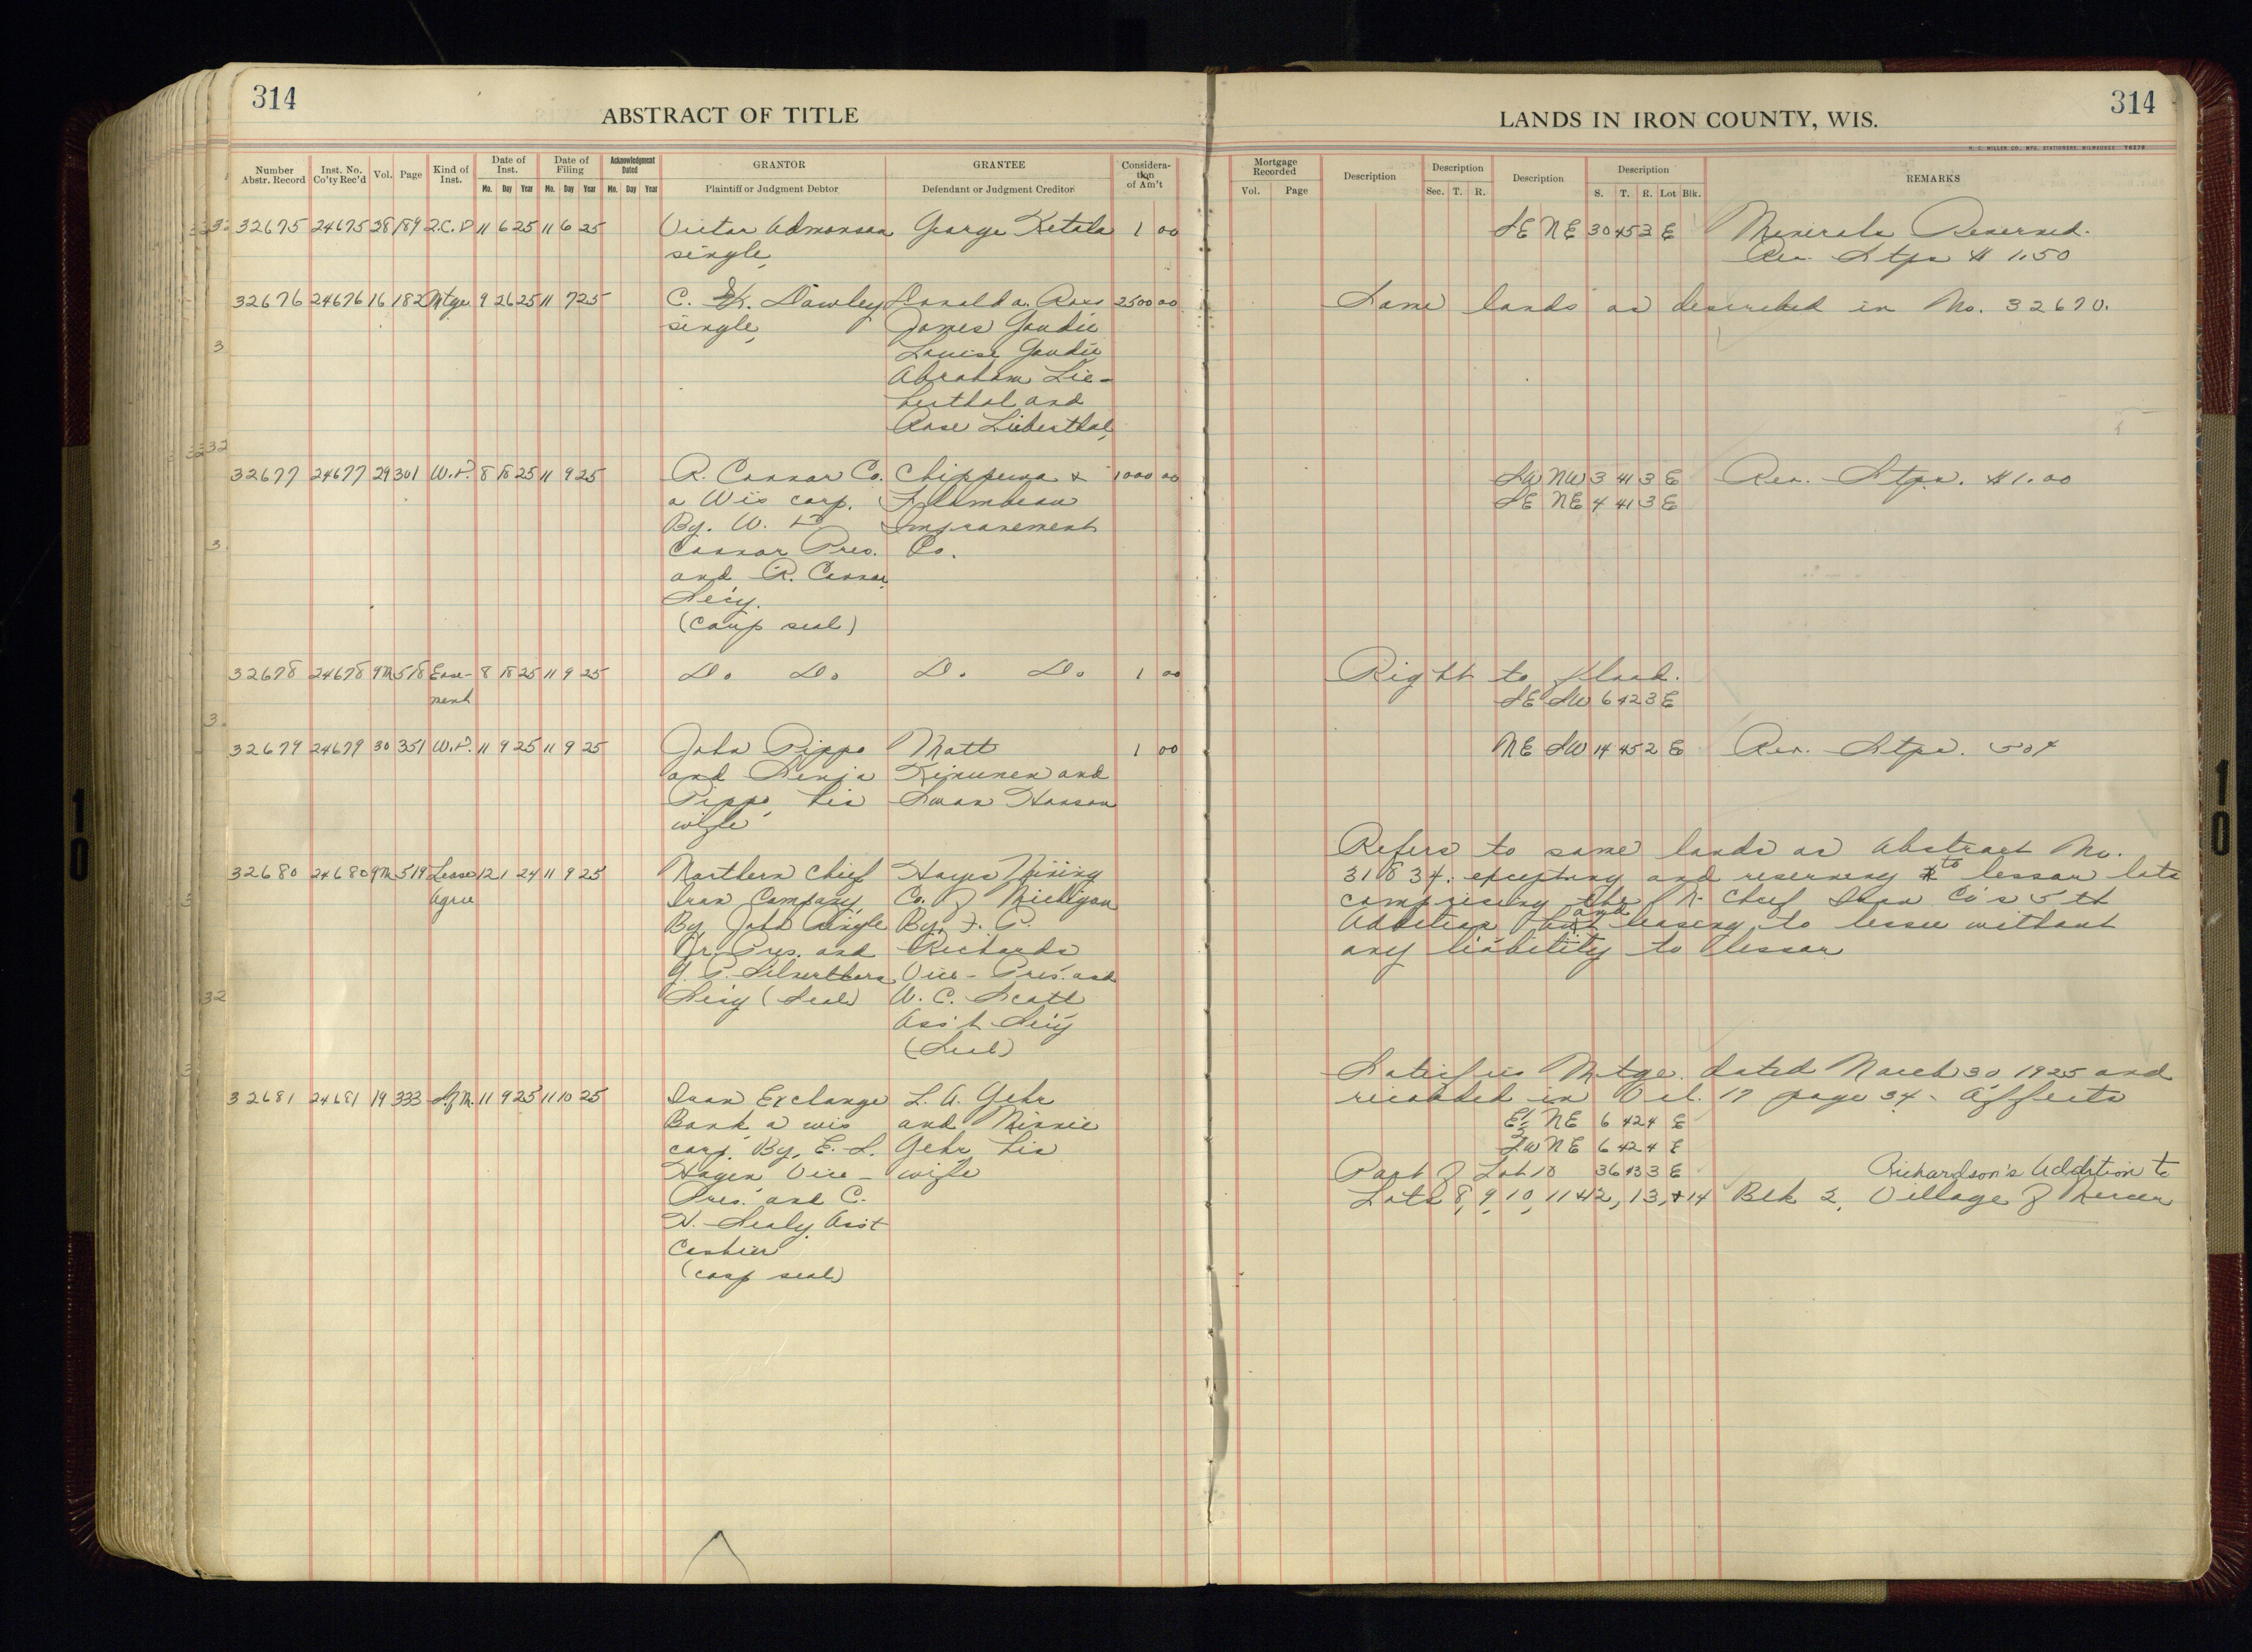 314
ABSTRACT OF TITLE
Number Abstr. Record | Inst. No. Co'ty Rec'd | Vol. | Page | Kind of Inst. | Date of Inst. Mo. Day Year | Date of Filing Mo. Day Year | Acknowledgment Dated Mo. Day Year | GRANTOR Plaintiff or Judgment Debtor | GRANTEE Defendant or Judgment Creditor | Consideration of Am't
32675 24675 28 189 Q.C.D 11 6 25 11 6 25 Victor Admonson George Ketola 1 00
single,
32676 24676 16 182 Mtge 9 26 25 11 7 25 C. Dawley Donald A. Ross 2500 00
single, James Goudie
Louise Goudie
Abraham Lie-
berthal and
Rose Lieberthal,
32677 24677 29 301 W.D. 8 18 25 11 9 25 R. Connor Co. Chippewa & 1000 00
a Wis corp. Flambeau
By. W. D. Improvement
Connor Pres. Co.
and R. Connor
Secy.
(corp seal)
32678 24678 9M 518 Ease- 8 18 25 11 9 25 Do Do Do Do 1 00
ment
32679 24679 30 351 W.D. 11 9 25 11 9 25 John Pippo Matt 1 00
and Senja Kinunen and
Pippo, his Swan Hanson
wife
32680 24680 9M 519 Lease 12 1 24 11 9 25 Northern Chief Hayes Mining
Agree Iron Company, Co. of Michigan
By John Single By F. P.
Jr. Pres. and Richards
Vice-Pres. and
Secy (Seal) W. C. Scott
Ass't Secy
(Seal)
32681 24681 19 333 S.of M. 11 9 25 11 10 25 Iron Exchange L. A. Gehr
Bank a wis and Minnie
corp. By, E. S. Gehr his
Hagen Vice- wife
Pres. and C.
N. Sealy Asst
Cashier
(corp seal)
314
LANDS IN IRON COUNTY, WIS.
H. C. MILLER CO., MFG. STATIONERS, MILWAUKEE
Mortgage Recorded Vol. Page | Description | Description Sec. T. R. | Description | Description S. T. R. Lot Blk. | REMARKS
SE NE 30 45 3 E Minerals Reserved.
Rev. Stps $ 1.50
Same lands as described in No. 32670.
SW NW 3 41 3 E Rev. Stps. $1.00
SE NE 4 41 3 E
Right to flood.
SE SW 6 42 3 E
NE SW 14 45 2 E Rev. Stps. 50¢
Refers to same lands as Abstract No.
31834. excepting and reserving to lessor lots
comprising the N. Chief Iron Co's 5th
Addition and leasing to lessee without
any liability to lessor
Satisfies Mtge. dated March 30 1925 and
recorded in Vol. 17 page 34. Affects
E½ NE 6 42 4 E
SW NE 6 42 4 E
Part of Lot 10 36 43 3 E Richardson's Addition to
Lots 8, 9, 10, 11 & 12, 13, & 14 Blk 2, Village of Mercer